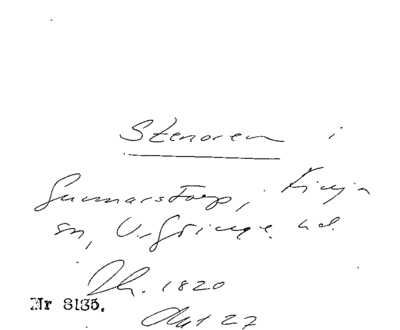 Stenoren i
Gunnarstorp, Kinja
sn, V. Göinge hd.
Dh. 1820
Nr 3135.
Aut 27